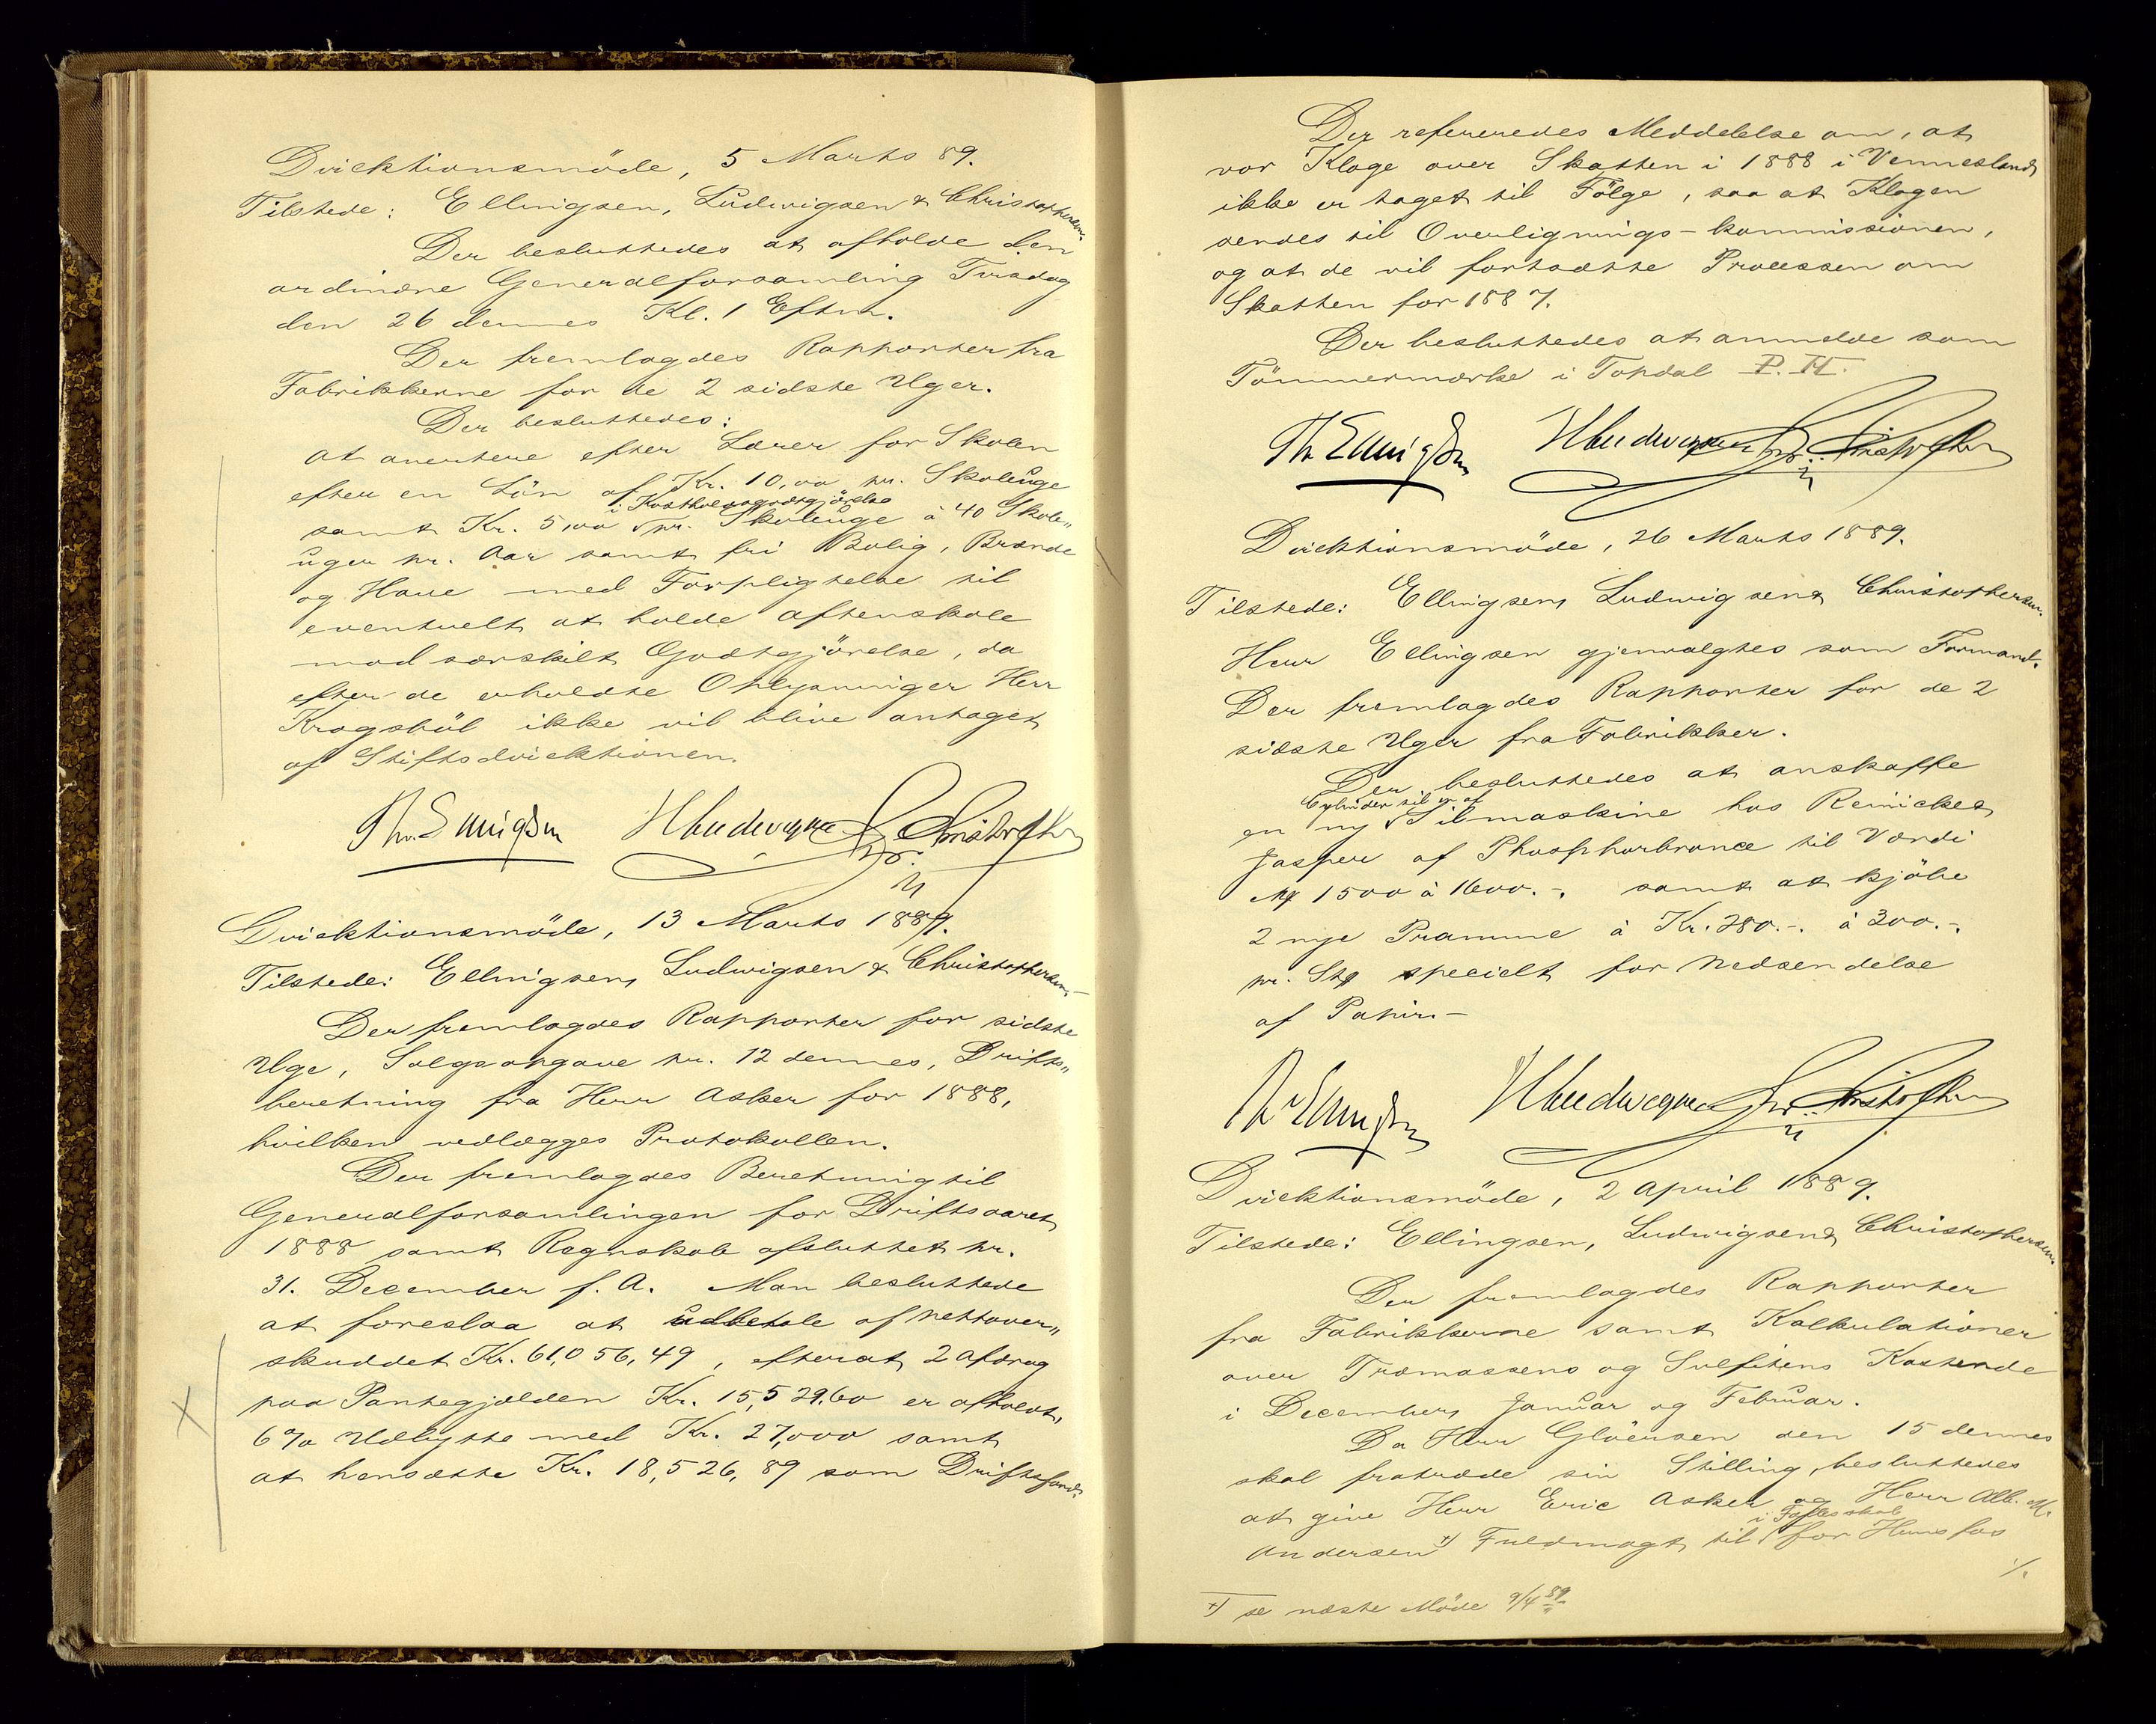 Direktionsmöde, 5 Marts 89.
Tilstede: Ellingsen, Ludwigsen & Christophersen.
Der besluttedes at afholde den
ordinære Generalforsamling Tirsdag
den 26 dennes Kl. 1 Eftm.
Der fremlagdes Rapporter fra
Fabrikkerne for de 2 sidste Uger.
Der besluttedes:
at avertere efter Lærer for Skolen
efter en Lön af Kr. 10,00 pr. Skoleuge
i Kostholdsgodtgjörelse
samt Kr. 5,00 pr. Skoleuge à 40 Skole„
uger pr. Aar samt fri Bolig, Brænde
og Have med Forpligtelse til
eventuelt at holde Aftenskole
mod særskilt Godtgjörelse, da
efter de erholdte Oplysninger Herr
Krogsböl ikke vil blive antaget
af Stiftsdirektionen.
Th. Ellingsen H Ludwigsen Chr. Christophersen
Direktionsmöde, 13 Marts 1889.
Tilstede: Ellingsen, Ludwigsen & Christophersen.
Der fremlagdes Rapporter for sidste
Uge, Salgsopgave pr. 12 dennes, Drifts„
beretning fra Herr Asker for 1888,
hvilken vedlægges Protokollen.
Der fremlagdes Beretning til
Generalforsamlingen for Driftsaaret
1888 samt Regnskab afsluttet pr.
31. December f. A. Man besluttede
at foreslaa at udbetale af Nettover„
skuddet Kr. 61,056,49, efterat 2 Afdrag
paa Pantegjælden Kr. 15,529,60 er afholdt,
6% Udbytte med Kr. 27,000 samt
at hensætte Kr. 18,526,89 som Driftsfond.
Der refereredes Meddelelse om, at
vor Klage over Skatten i 1888 i Vennesland
ikke er taget til Fölge, saa at Klagen
sendes til Overlignings-kommissionen,
og at de vil fortsætte Processen om
Skatten for 1887.
Der besluttedes at anmelde som
Tömmermærke i Topdal P. H.
Th Ellingsen H Ludwigsen Chr. Christophersen
Direktionsmöde, 26 Marts 1889.
Tilstede: Ellingsen, Ludwigsen & Christophersen.
Herr Ellingsen gjenvalgtes som Formand.
Der fremlagdes Rapporter for de 2
sidste Uger fra Fabrikker.
Der besluttedes at anskaffe
Cylinder til
en ny Silmaskine hos Reinicke &
Jasper af Phosphorbronce til Værdi
Mk 1500 à 1600.-. samt at kjöbe
2 nye Pramme à Kr. 280.-. à 300.-.
pr. Stk specielt for Nedsendelse
af Papir. —
Th Ellingsen H Ludwigsen Chr. Christophersen
Direktionsmöde, 2 April 1889.
Tilstede: Ellingsen, Ludwigsen & Christophersen
Der fremlagdes Rapporter
fra Fabrikkerne samt Kalkulationer
over Træmassens og Sulfitens Kostende
i December, Januar og Februar.
Da Herr Glöersen den 15 dennes
skal fratræde sin Stilling, besluttedes
at give Herr Eric Asker og Herr Alb. M.
i Fællesskab
Andersen +) Fuldmagt til for Hunsfos
./.
+) se næste Möde 9/4 89